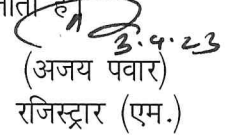 जाता है।
3.4.23
(अजय पवार)
रजिस्ट्रार (एम.)